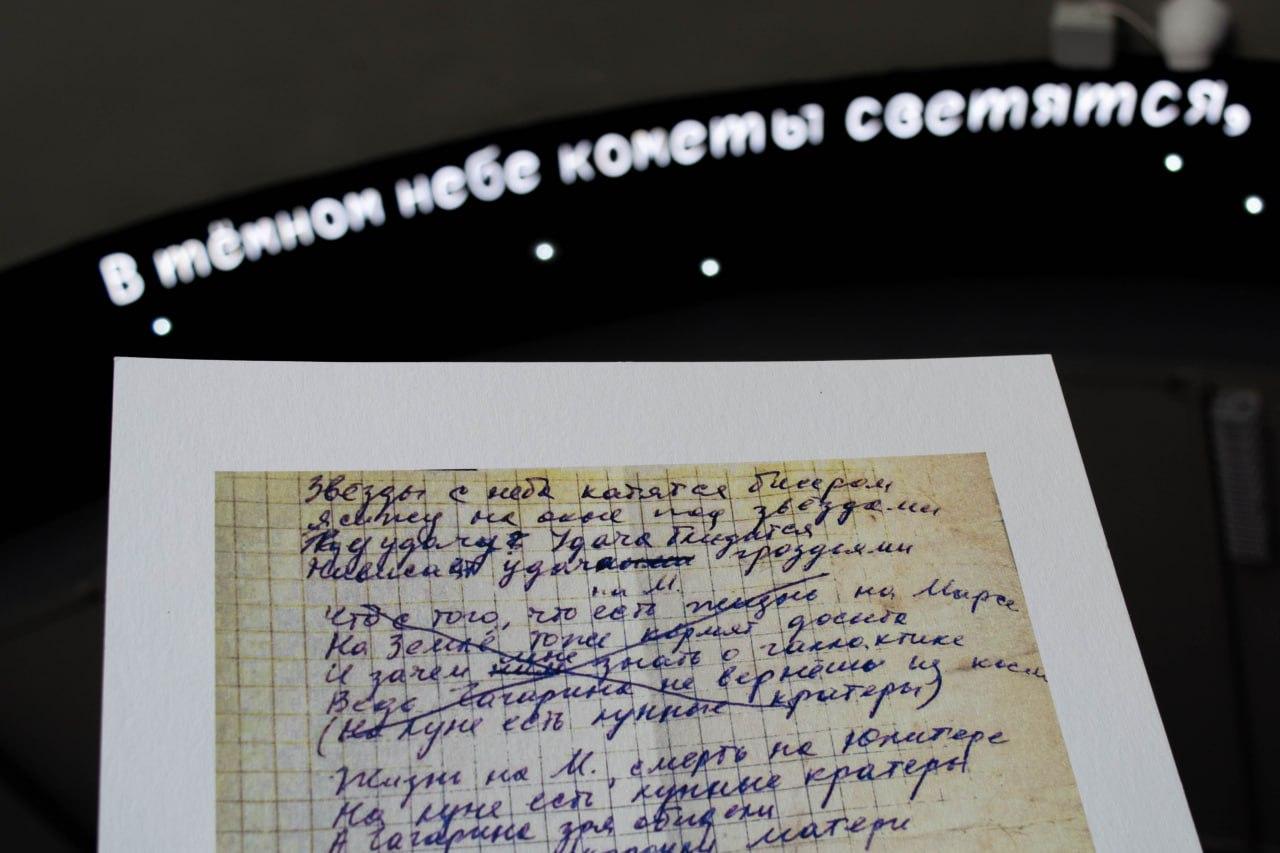 В тёмном небе кометы светятся,
Звёзды с неба катятся бисером
Я сижу на окне под звёздами
Жду удачу Удача бисером
Нависает удача гроздьями
на М.
Что с того, что есть жизнь на Марсе
На Земле тоже кормят досыта
И зачем мне знать о галлактике
Ведь Гагарина не вернёшь из косм
(На луне есть лунные кратеры)
Жизнь на М., смерть на Юпитере
На луне есть лунные кратеры
А Гагарина зря обидели
матери